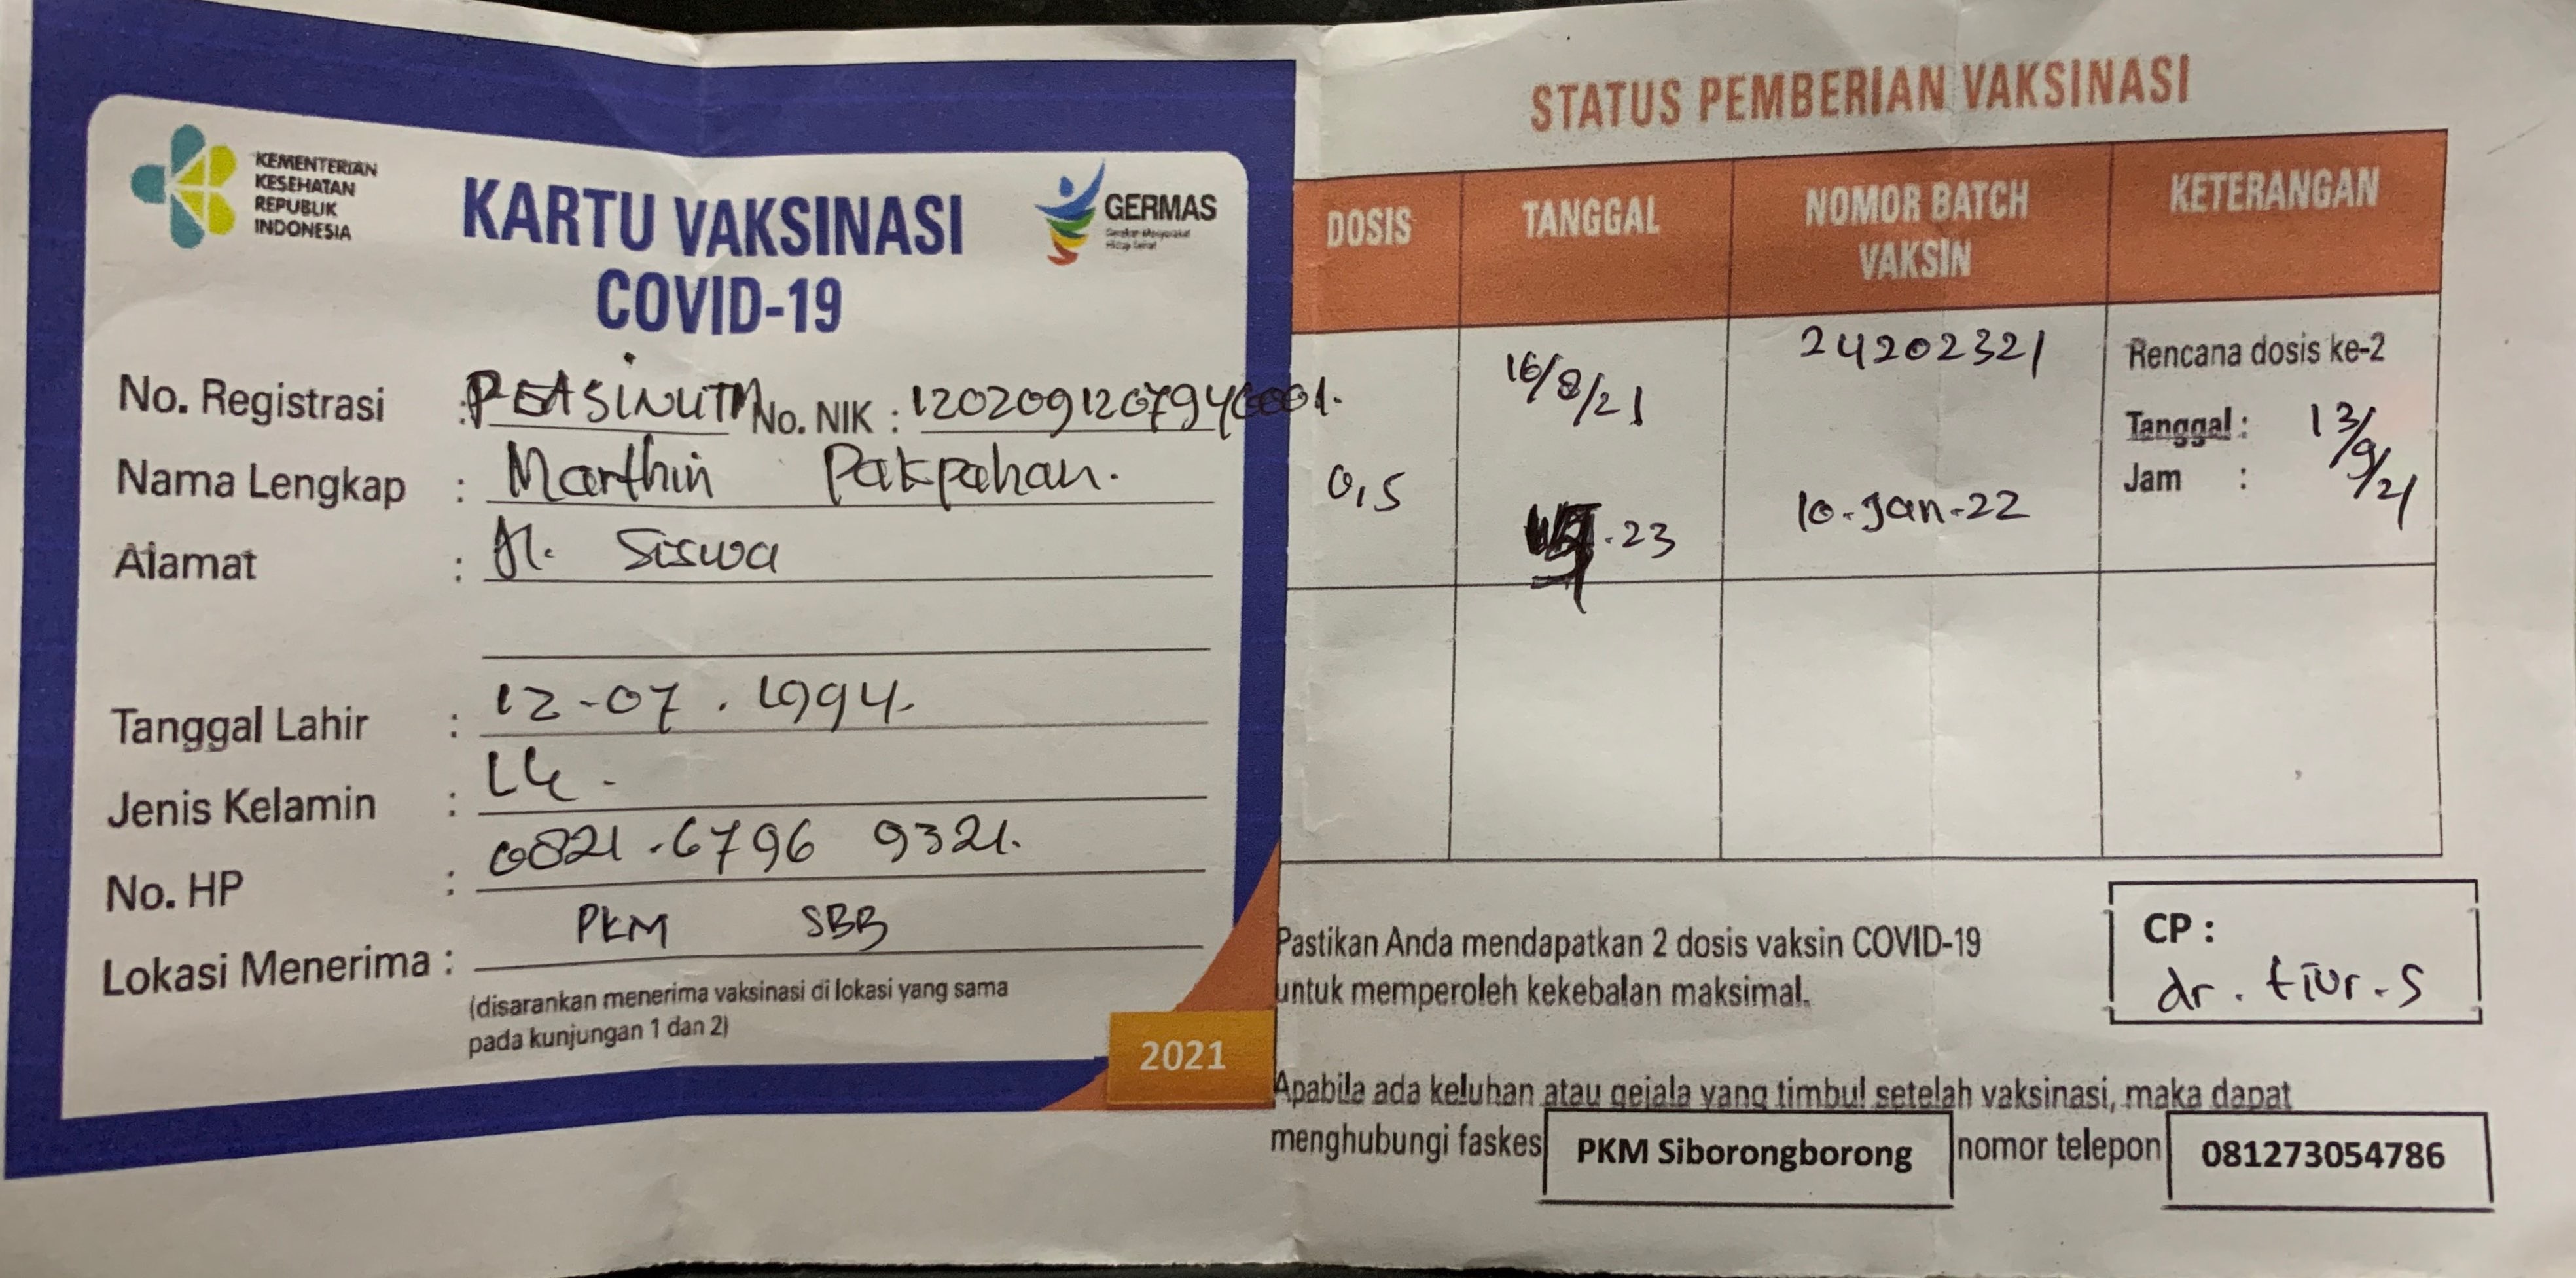 KEMENTERIAN
KESEHATAN
REPUBLIK
INDONESIA
KARTU VAKSINASI
COVID-19
GERMAS
Gerakan Masyarakat
Hidup Sehat
No. Registrasi : No. NIK : 1202091207940001.
Nama Lengkap : Marthin Pakpahan.
Alamat : Jl. Siswa
Tanggal Lahir : 12-07.1994.
Jenis Kelamin : Lk.
No. HP : 0821.6796 9321.
Lokasi Menerima : PKM SBB
(disarankan menerima vaksinasi di lokasi yang sama
pada kunjungan 1 dan 2)
2021
STATUS PEMBERIAN VAKSINASI
DOSIS TANGGAL NOMOR BATCH VAKSIN KETERANGAN
0,5
16/8/21
.23
24202321
10-Jan-22
Rencana dosis ke-2
Tanggal : 13/9/21
Jam :
Pastikan Anda mendapatkan 2 dosis vaksin COVID-19
untuk memperoleh kekebalan maksimal.
CP :
dr. tiur.s
Apabila ada keluhan atau gejala yang timbul setelah vaksinasi, maka dapat
menghubungi faskes PKM Siborongborong nomor telepon 081273054786